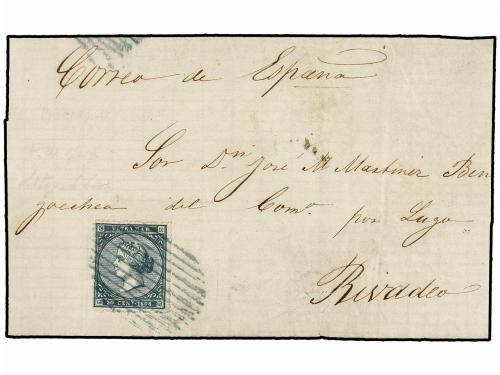 Correo de España
Sor Dn José M Martinez Ben
goechea del Como por Lugo
Rivadeo
ULTRAMAR
20 CENT. 1868